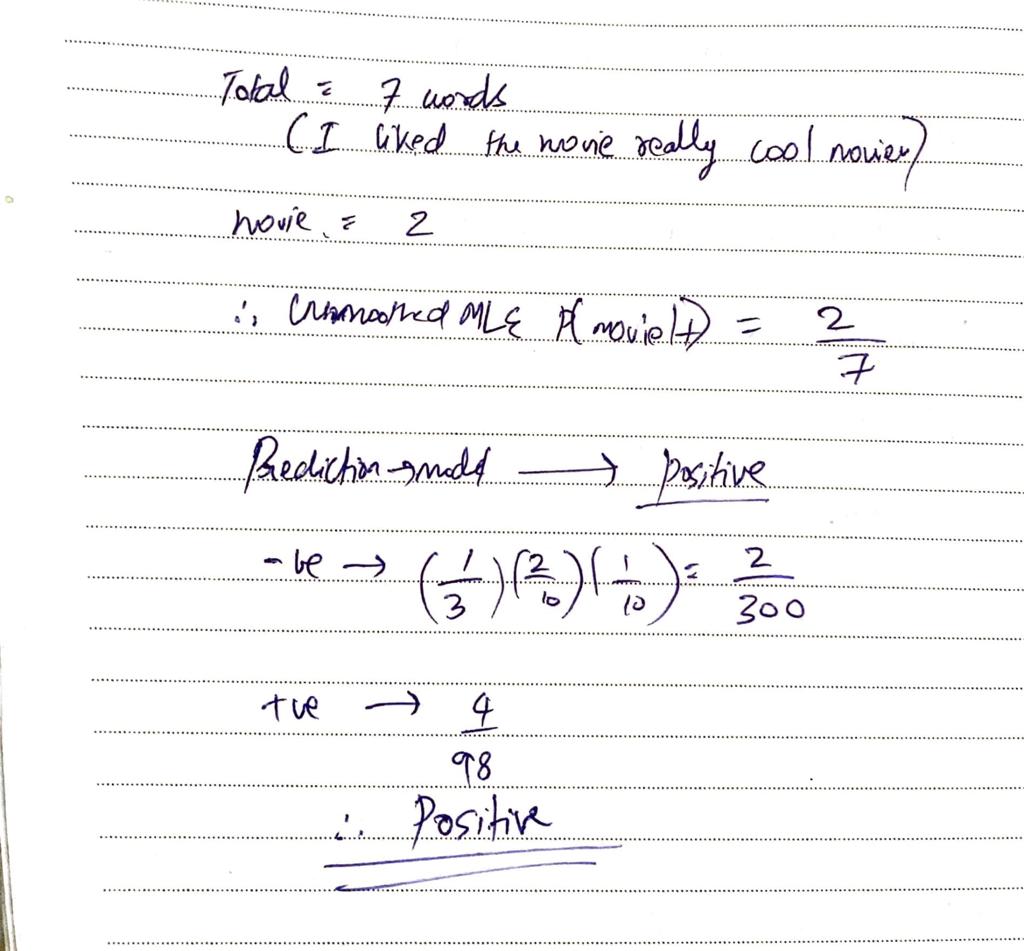 Total = 7 words
(I liked the movie really cool movies)
movie = 2
∴ Unsmoothed MLE P(movie|+) = 2/7
Prediction → model ⟶ Positive
-ve → (1/3)(2/10)(1/10) = 2/300
+ve → 4/98
∴ Positive